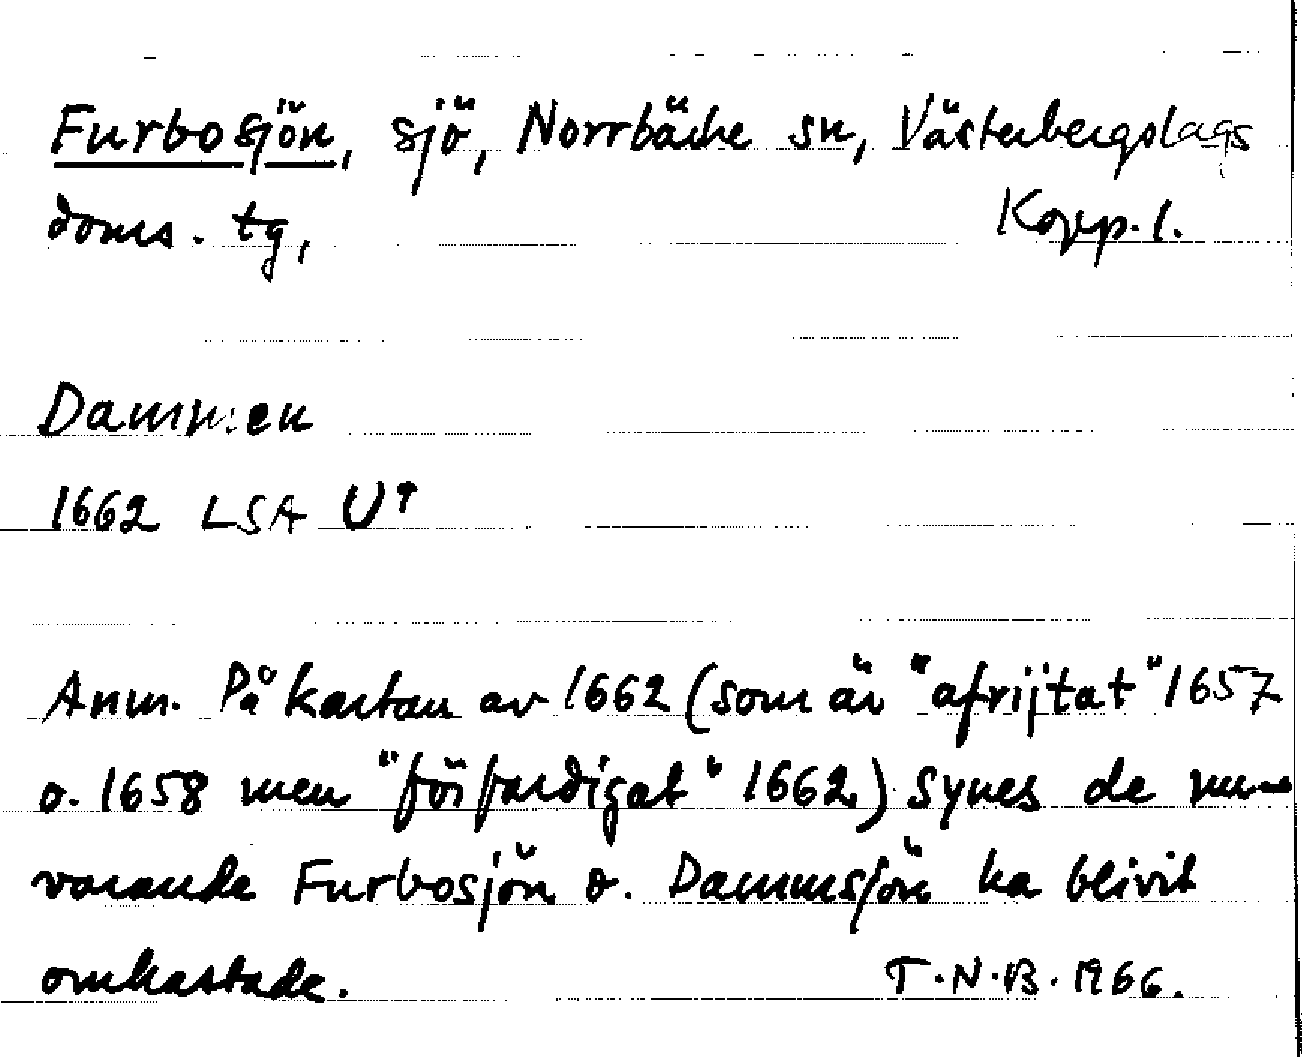 Furbosjön, sjö, Norrbärke sn, Västerbergslags
doms. tg, Kopp. l.
Dammen
1662 LSA U↑
Anm. På kartan av 1662 (som är "afrijtat" 1657
o. 1658 men "förfardigat" 1662) synes de nu-
varande Furbosjön o. Dammsjön ha blivit
omkastade. T.N.B. 1966.